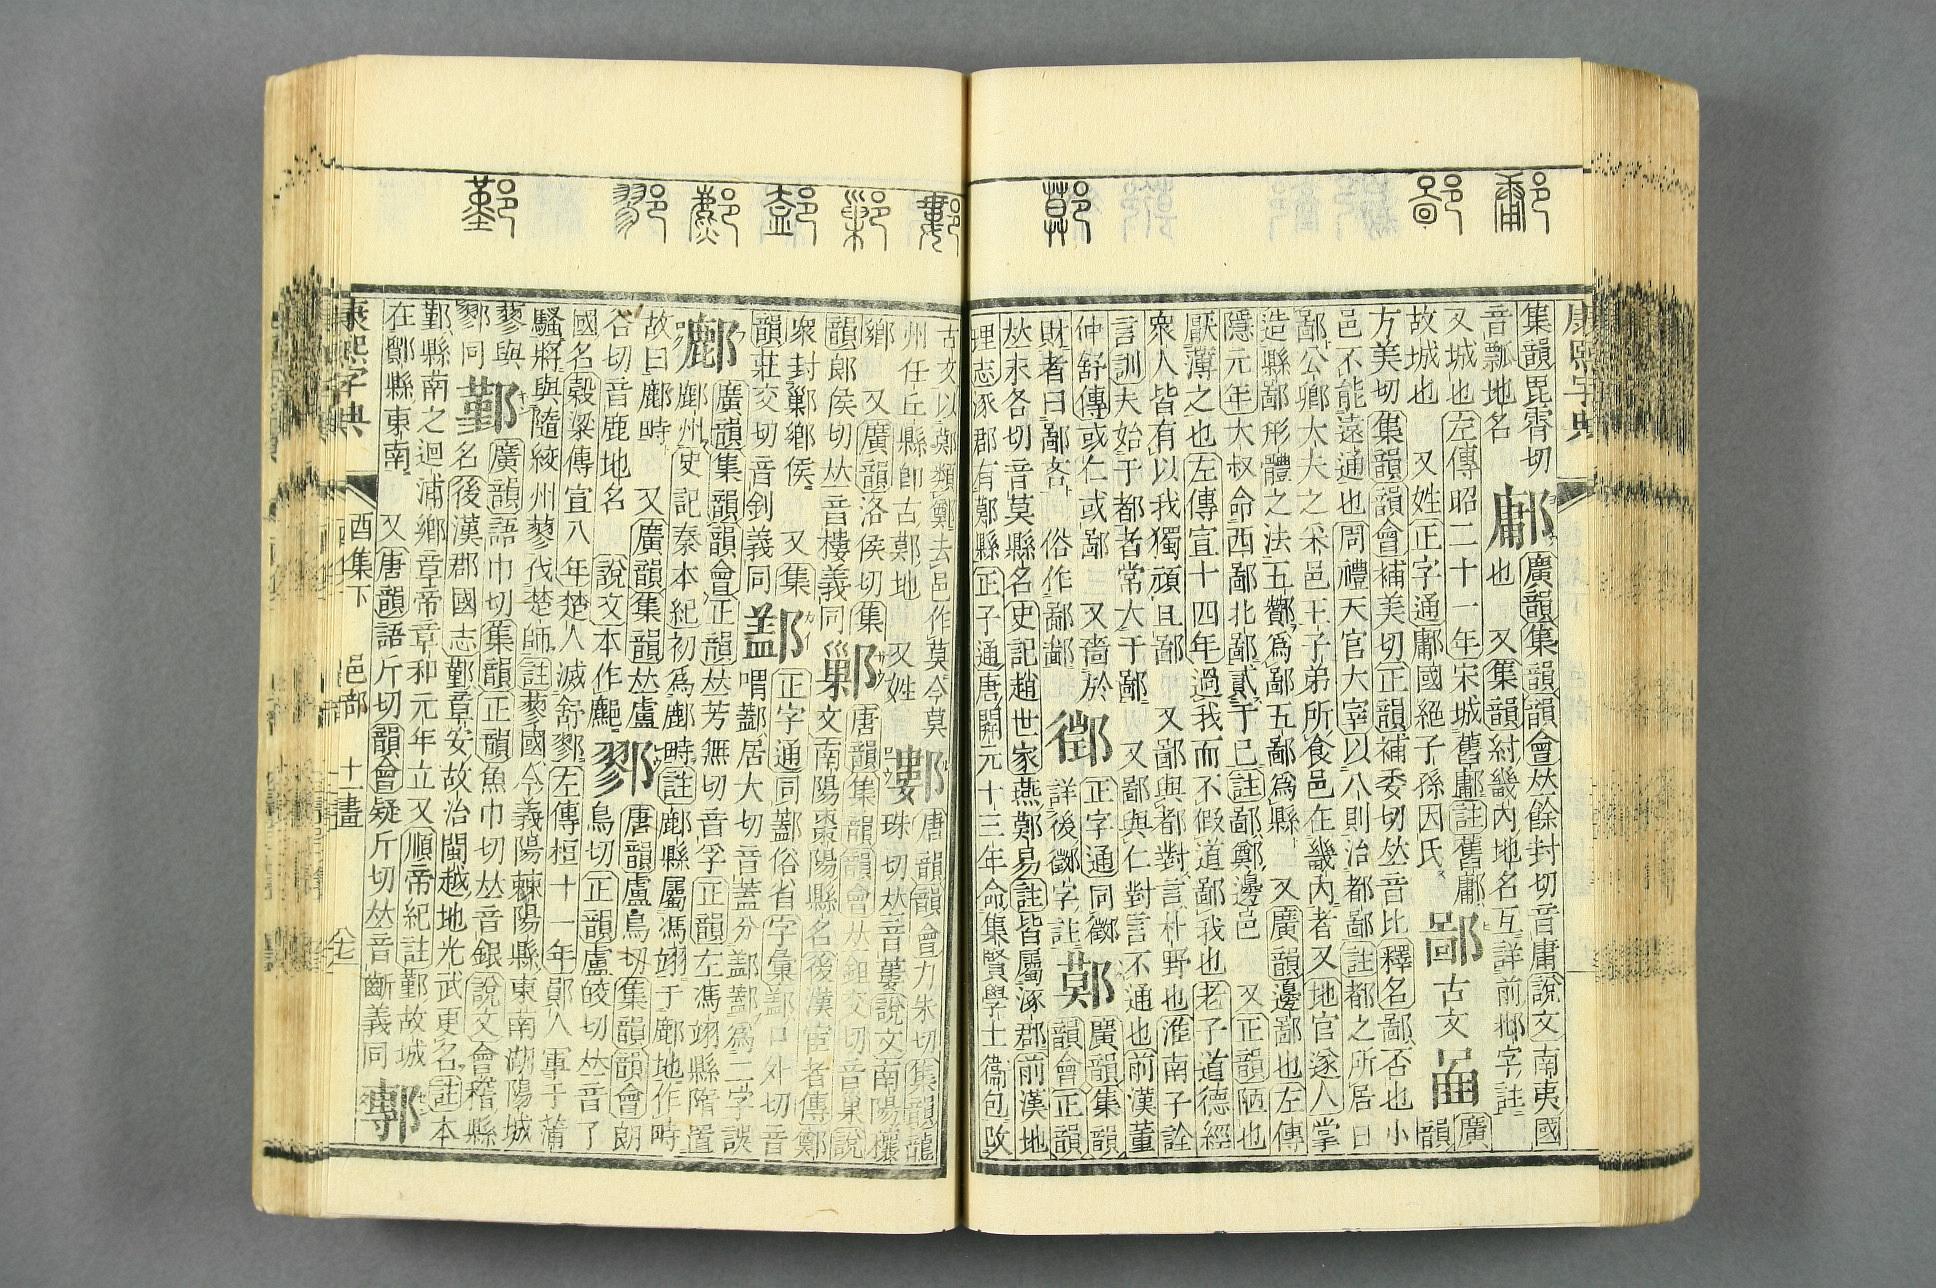 康熙字典
集韻毘霄切
音瓢地名
鄘
廣韻集韻韻會𠀤餘封切音庸說文南夷國
也 又集韻紂畿內地名互詳前邶字註
又城也左傳昭二十一年宋城舊鄘註舊鄘
故城也 又姓正字通鄘國絕子孫因氏
鄙 古文 啚
廣
韻
方美切集韻韻會補美切正韻補委切𠀤音比釋名鄙否也小
邑不能遠通也周禮天官大宰以八則治都鄙註都之所居曰
鄙公卿大夫之采邑王子弟所食邑在畿內者又地官遂人掌
造縣鄙形體之法五酇爲鄙五鄙爲縣 又廣韻邊鄙也左傳
隱元年大叔命西鄙北鄙貳于己註鄙鄭邊邑 又正韻陋也
厭薄之也左傳宣十四年過我而不假道鄙我也老子道德經
衆人皆有以我獨頑且鄙 又鄙與都對言朴野也淮南子詮
言訓夫始于都者常大于鄙 又鄙與仁對言不通也前漢董
仲舒傳或仁或鄙 又嗇於
財者曰鄙吝 俗作鄙
正字通同
詳後字註
鄚
廣韻集韻
韻會正韻
𠀤末各切音莫縣名史記趙世家燕鄚易註皆屬涿郡前漢地
理志涿郡有鄚縣正字通唐開元十三年命集賢學士衞包改
古文以鄚類鄭去邑作莫今莫
州任丘縣卽古鄚地 又姓
鄻
唐韻韻會力朱切集韻龍
珠切𠀤音蔞說文南陽穰
鄉 又廣韻洛侯切集
韻郎侯切𠀤音樓義同
鄛
唐韻集韻韻會𠀤鉏交切音巢說
文南陽棗陽縣名後漢宦者傳鄭
衆封鄛鄉侯 又集
韻莊交切音釗義同
正字通同蓋俗省字彙口外切音
喟居大切音蓋分爲二字誤
鄜
廣韻集韻韻會正韻𠀤芳無切音孚正韻左馮翊縣隋置
鄜州史記秦本紀初爲鄜畤註鄜縣屬馮翊于鄜地作畤
故曰鄜畤 又廣韻集韻𠀤盧
谷切音鹿地名 說文本作
鄝
唐韻盧鳥切集韻韻會朗
鳥切正韻盧皎切𠀤音了
國名穀梁傳宣八年楚人滅舒鄝左傳桓十一年鄖人軍于蒲
騷將與隨絞州蓼伐楚師註蓼國今義陽棘陽縣東南湖陽城
蓼與
鄝同
鄞
廣韻語巾切集韻正韻魚巾切𠀤音銀說文會稽縣
名後漢郡國志鄞章安故治閩越地光武更名註本
鄞縣南之迴浦鄉章帝章和元年立又順帝紀註鄞故城
在鄮縣東南 又唐韻語斤切韻會疑斤切𠀤音齗義同
鄟
康熙字典 酉集下 邑部 十一畫